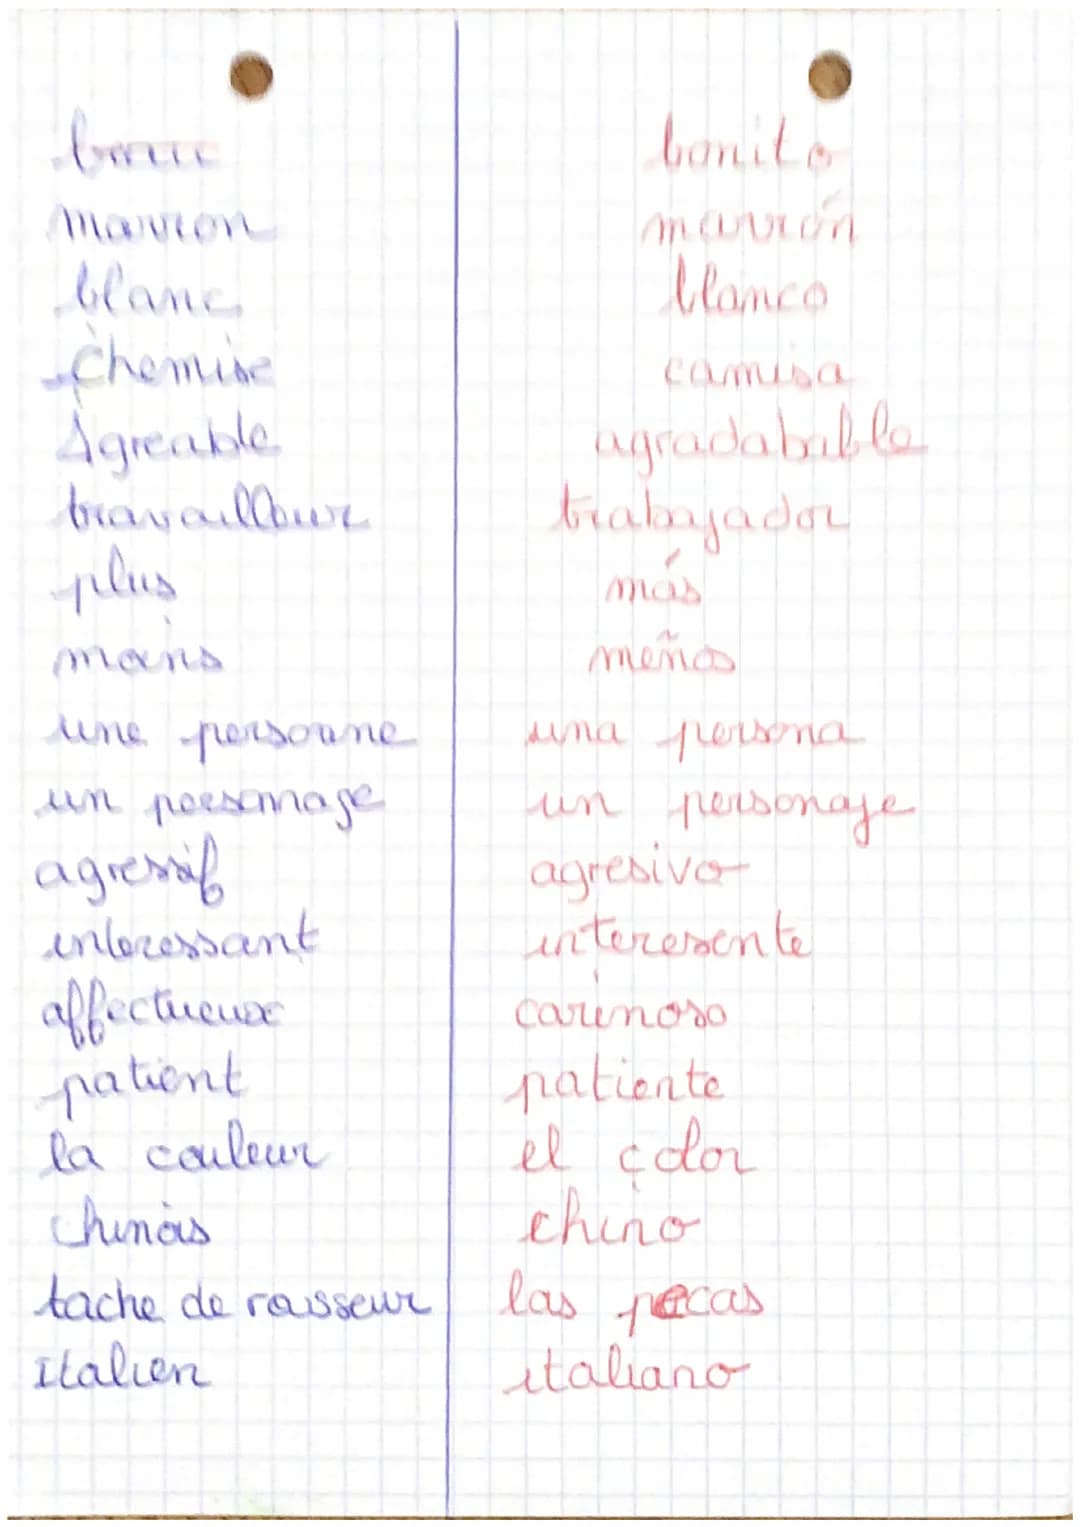 beau bonito
marron marrón
blanc blanco
chemise camisa
Agreable agradabable
travailleur trabajador
plus más
moins meños
une personne una persona
un personnage un personaje
agressif agresivo
interessant interesente
affectueux carinoso
patient patiente
la couleur el color
chinois chino
tache de rousseur las pecas
Italien italiano